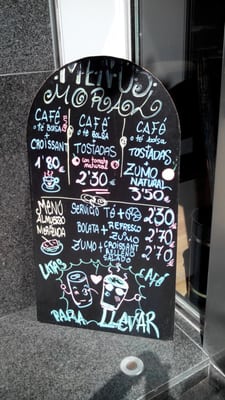 MENUS
MORAL
CAFÉ
o té bolsa
+
CROISSANT
1'80
CAFÉ
o té bolsa
+
TOSTADAS
con tomate
natural
2'30
CAFÉ
o té bolsa
+
TOSTADAS
+
ZUMO
NATURAL
3'50
MENÚ
ALMUERZO
MERIENDA
SERVICIO TÉ +
2'30
BOLLATA + REFRESCO
o ZUMO
2'70
ZUMO + CROISSANT
RELLENO
SALADO
2'70
LATAS
CAFÉ
PARA LLEVAR